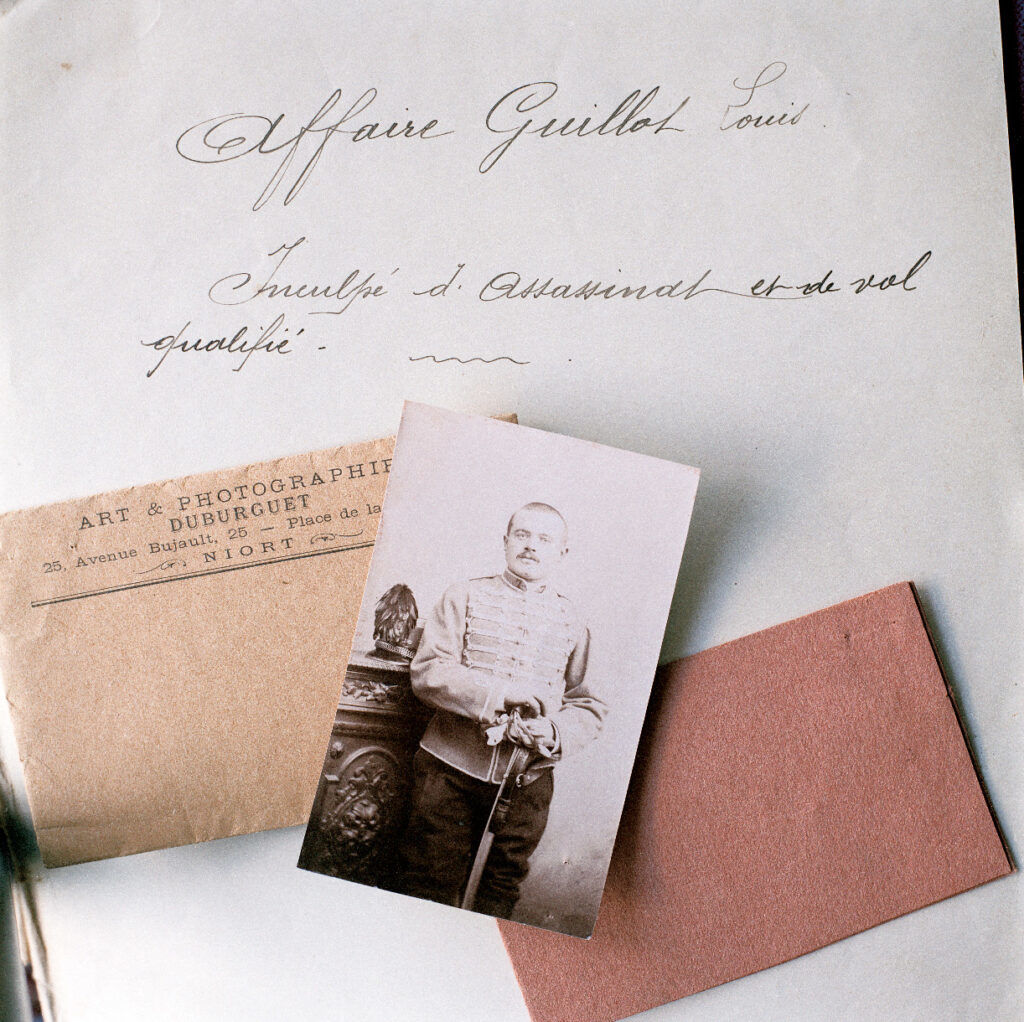 Affaire Guillot Louis.
Inculpé d'assassinat et de vol
qualifié.
ART & PHOTOGRAPHIE
DUBURGUET
25, Avenue Bujault, 25 — Place de la
NIORT